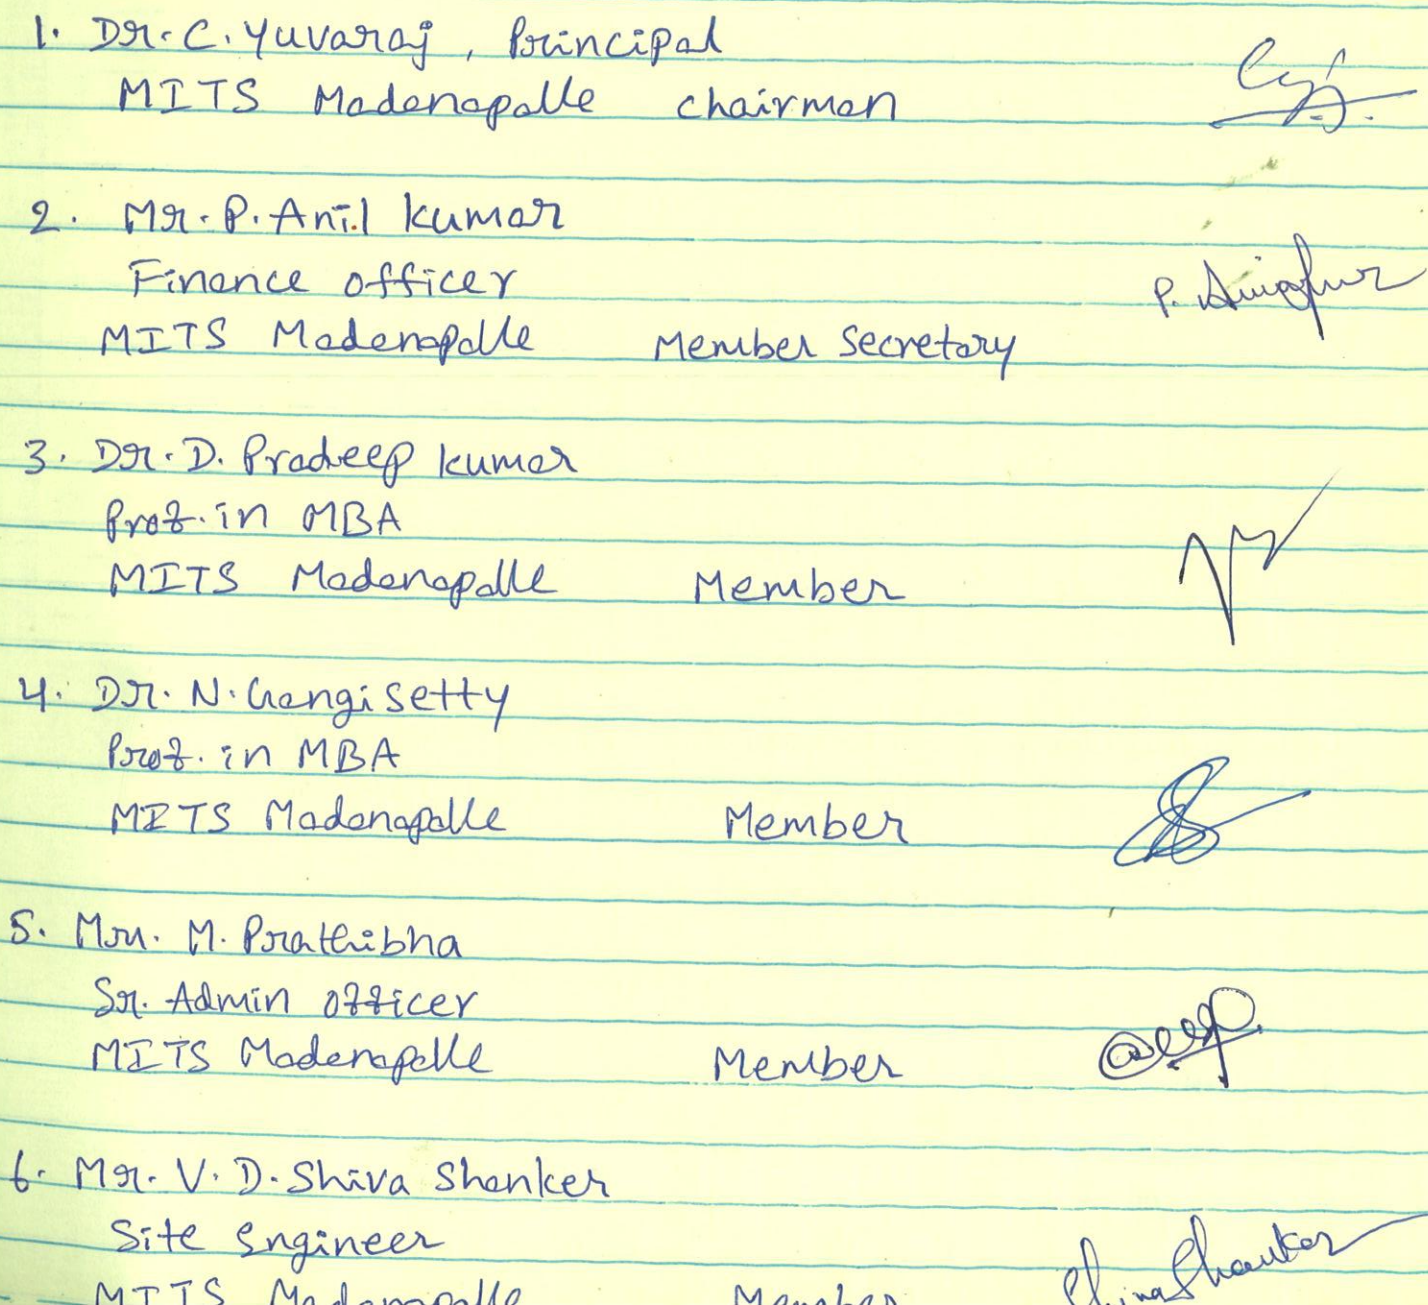 1. Dr. C. Yuvaraj, Principal
MITS Madanapalle chairman
2. Mr. P. Anil kumar
Finance officer
P. Anil
MITS Madanapalle Member Secretary
3. Dr. D. Pradeep kumar
Prof. in MBA
MITS Madanapalle Member
4. Dr. N. Gangisetty
Prof. in MBA
MITS Madanapalle Member
5. Mrs. M. Prathibha
Sr. Admin officer
MITS Madanapalle Member
6. Mr. V. D. Shiva Shanker
Site Engineer
Shiva Shankar
MITS Madanapalle Member